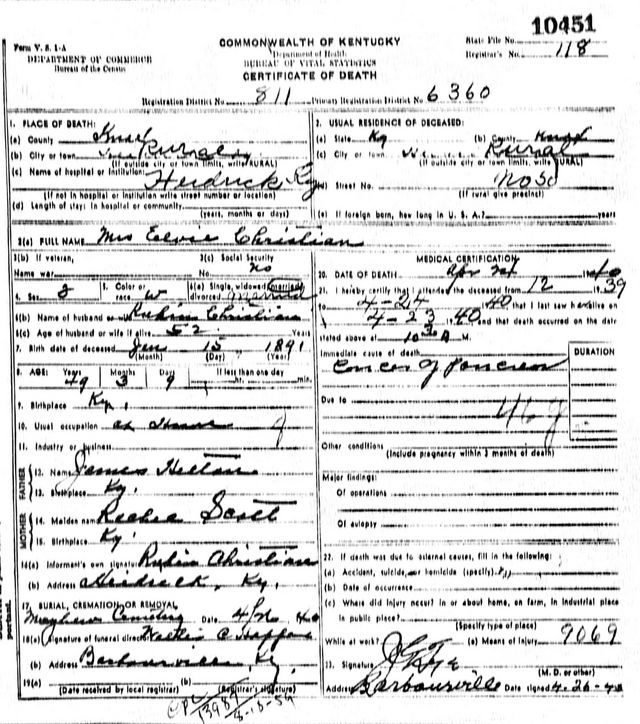 10451
COMMONWEALTH OF KENTUCKY
Form V. S. 1-A
State File No.
DEPARTMENT OF COMMERCE
Department of Health
Registrar's No. 118
Bureau of the Census
BUREAU OF VITAL STATISTICS
CERTIFICATE OF DEATH
Registration District No. 811 Primary Registration District No 6360
1. PLACE OF DEATH:
(a) County Knox
(b) City or town Rural
(If outside city or town limits, write RURAL)
(c) Name of hospital or institution: Heidrick Ky
(If not in hospital or institution write street number or location)
(d) Length of stay: In hospital or community
(years, months or days)
2. USUAL RESIDENCE OF DECEASED:
(a) State Ky (b) County Knox
(c) City or town Rural
(If outside city or town limits, write RURAL)
(d) Street No.
(If rural give precinct)
(e) If foreign born, how long in U. S. A.? years
3(a) FULL NAME Mrs Christian
3(b) If veteran, 3(c) Social Security
Name war No. No
4. Sex 5. Color or race W 6(a) Single, widowed, married, divorced married
6(b) Name of husband or wife Rubin Christian
6(c) Age of husband or wife if alive 52 Years
7. Birth date of deceased Jan 15 1891
(Month) (Day) (Year)
8. AGE: Years Months Days If less than one day
49 3 9 hr. min.
9. Birthplace Ky,
10. Usual occupation at Home
11. Industry or business
FATHER
12. Name James
13. Birthplace Ky.
MOTHER
14. Maiden name Scott
15. Birthplace Ky
16(a) Informant's own signature Rubin Christian
(b) Address Heidrick, Ky.
17. BURIAL, CREMATION OR REMOVAL
Cemetery Date
18(a) Signature of funeral director
(b) Address Barbourville, Ky.
19(a) (b)
(Date received by local registrar) (Registrar's signature)
MEDICAL CERTIFICATION
20. DATE OF DEATH Apr 24 1940
21. I hereby certify that I attended the deceased from 12 1939
to 4-24 1940 that I last saw her alive on
4-23 1940 and that death occurred on the date
stated above at 10 30 A M.
Immediate cause of death DURATION
Cancer of Pancreas
Due to
46g
Other conditions
(Include pregnancy within 3 months of death)
Major findings:
Of operations
Of autopsy
22. If death was due to external causes, fill in the following:
(a) Accident, suicide, or homicide (specify)
(b) Date of occurrence
(c) Where did injury occur? In or about home, on farm, in industrial place
in public place?
(Specify type of place)
While at work? (e) Means of Injury 9069
23. Signature
(M. D. or other)
Address Barbourville Date signed 4-26-40